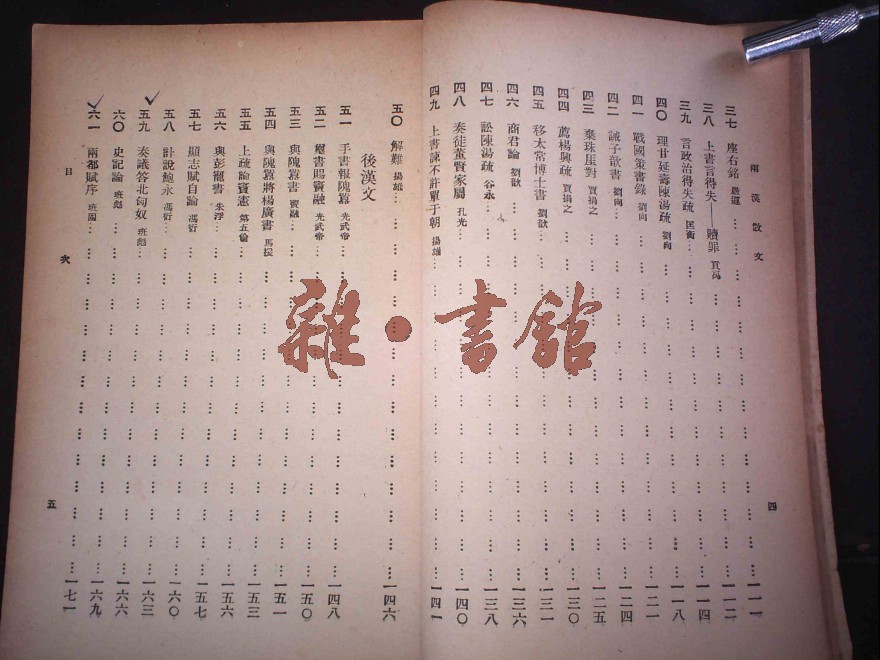 兩漢散文
三七 座右銘 嚴遵 …… 一一一
三八 上書言得失——贖罪 貢禹 …… 一一二
三九 言政治得失疏 匡衡 …… 一一四
四〇 理甘延壽陳湯疏 劉向 …… 一一八
四一 戰國策書錄 劉向 …… 一二一
四二 誡子歆書 劉向 …… 一二四
四三 棄珠厓對 賈捐之 …… 一二五
四四 薦楊興疏 賈捐之 …… 一三〇
四五 移太常博士書 劉歆 …… 一三一
四六 商君論 劉歆 …… 一三六
四七 訟陳湯疏 谷永 …… 一三八
四八 奏徙董賢家屬 孔光 …… 一四〇
四九 上書諫不許單于朝 揚雄 …… 一四一
四
五〇 解難 揚雄 …… 一四六
後漢文
五一 手書報隗囂 光武帝 …… 一四八
五二 璽書賜竇融 光武帝 …… 一五〇
五三 與隗囂書 竇融 …… 一五一
五四 與隗囂將楊廣書 馬援 …… 一五三
五五 上疏論竇憲 第五倫 …… 一五六
五六 與彭寵書 朱浮 …… 一五七
五七 顯志賦自論 馮衍 …… 一六〇
五八 計說鮑永 馮衍 …… 一六三
五九 奏議答北匈奴 班彪 …… 一六六
六〇 史記論 班彪 …… 一六九
六一 兩都賦序 班固 …… 一七一
目次
五
雜·書館